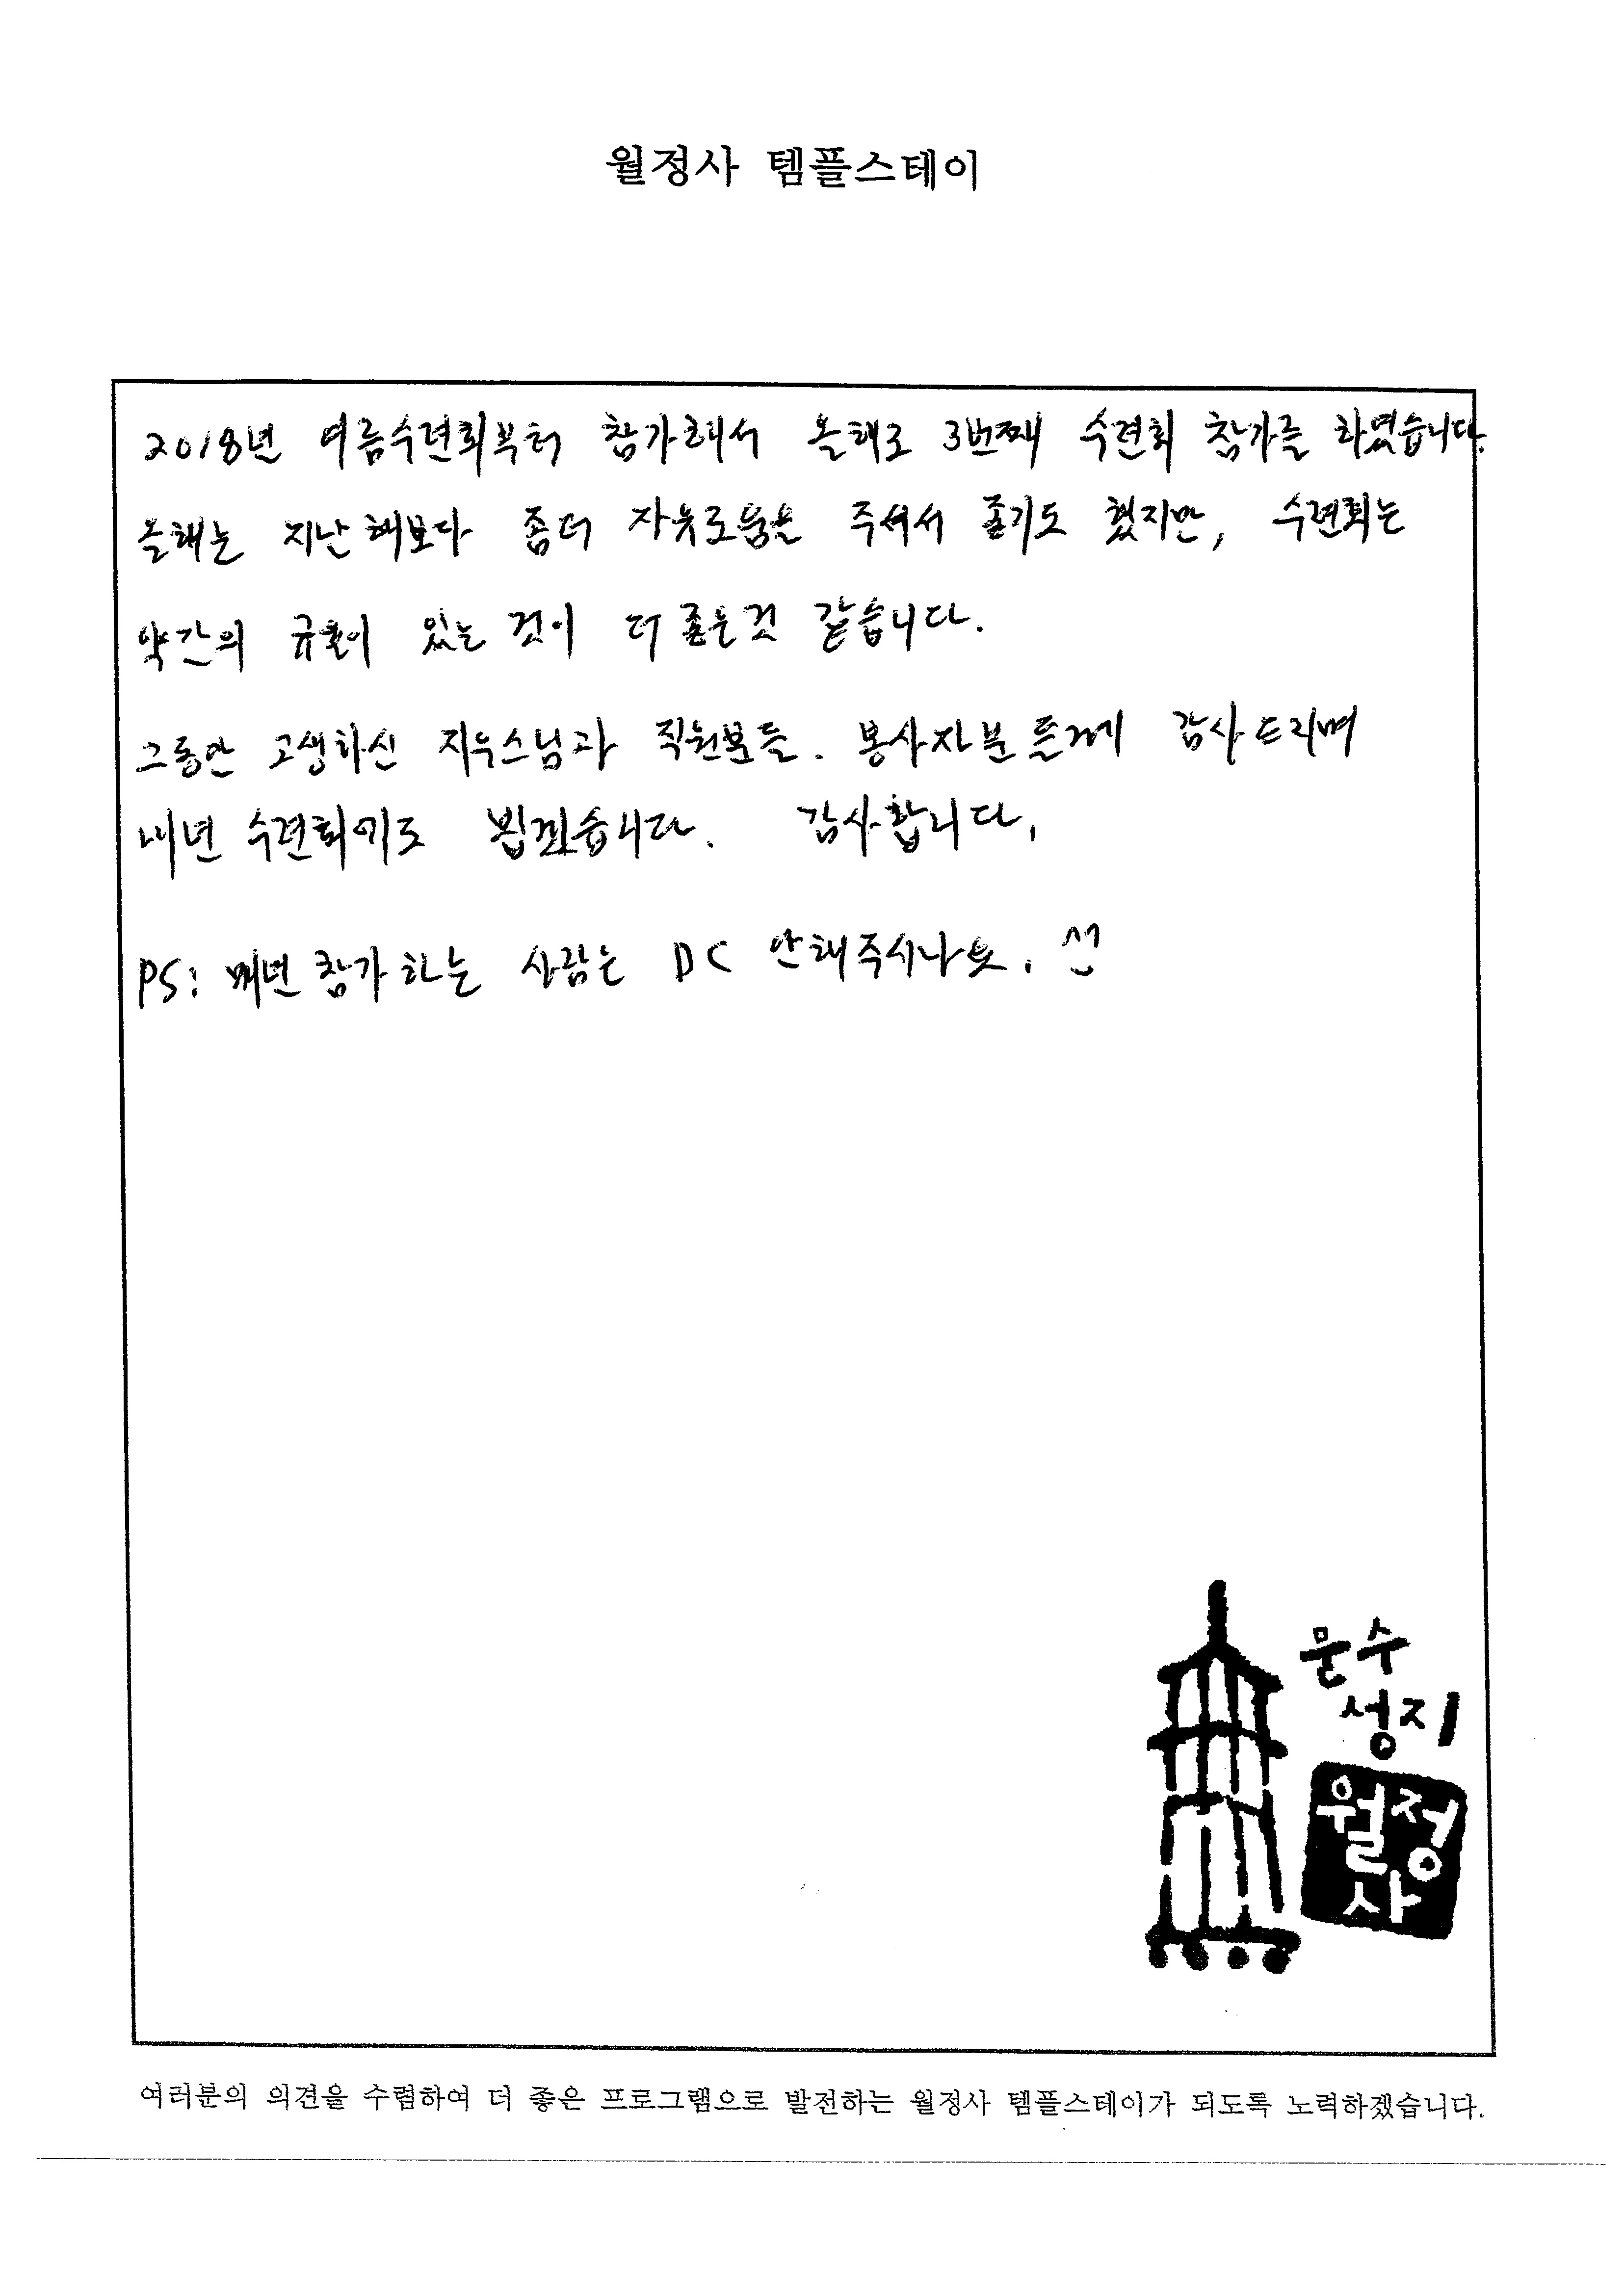 월정사 템플스테이
2018년 여름수련회부터 참가해서 올해로 3번째 수련회 참가를 하였습니다.
올해는 지난해보다 좀더 자유로움을 주셔서 좋기도 했지만, 수련회는
약간의 규율이 있는 것이 더 좋은것 같습니다.
그동안 고생하신 지우스님과 직원분들. 봉사자분들께 감사드리며
내년 수련회에도 뵙겠습니다. 감사합니다.
PS: 매년 참가하는 사람은 DC 안해주시나요. ^^
문수
성지
월정
사
여러분의 의견을 수렴하여 더 좋은 프로그램으로 발전하는 월정사 템플스테이가 되도록 노력하겠습니다.